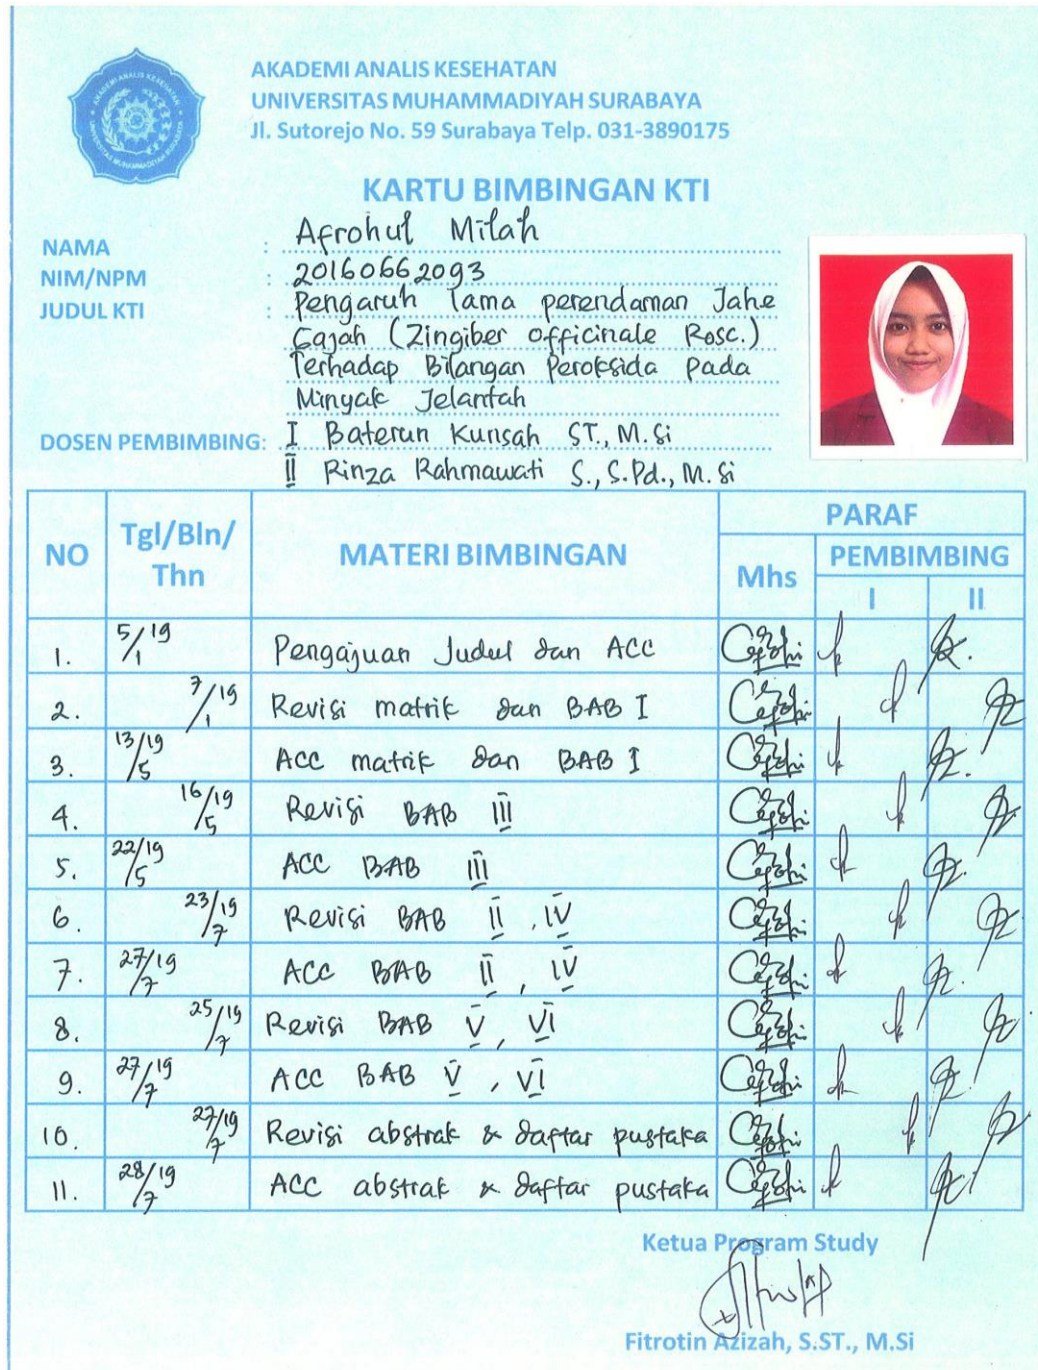 AKADEMI ANALIS KESEHATAN
UNIVERSITAS MUHAMMADIYAH SURABAYA
Jl. Sutorejo No. 59 Surabaya Telp. 031-3890175
KARTU BIMBINGAN KTI
NAMA : Afrohul Milah
NIM/NPM : 20160662093
JUDUL KTI : Pengaruh lama perendaman Jahe
Gajah (Zingiber officinale Rosc.)
Terhadap Bilangan Peroksida pada
Minyak Jelantah
DOSEN PEMBIMBING: I Baterun Kunsah ST., M.Si
II Rinza Rahmawati S., S.Pd., M.Si
NO Tgl/Bln/Thn MATERI BIMBINGAN PARAF
Mhs PEMBIMBING
I II
1. 5/19/1 Pengajuan Judul dan ACC
2. 7/19/1 Revisi matrik dan BAB I
3. 13/19/5 ACC matrik dan BAB I
4. 16/19/5 Revisi BAB III
5. 22/19/5 ACC BAB III
6. 23/19/7 Revisi BAB II, IV
7. 27/19/7 ACC BAB II, IV
8. 25/19/7 Revisi BAB V, VI
9. 27/19/7 ACC BAB V, VI
10. 27/19/7 Revisi abstrak & daftar pustaka
11. 28/19/7 ACC abstrak & daftar pustaka
Ketua Program Study
Fitrotin Azizah, S.ST., M.Si